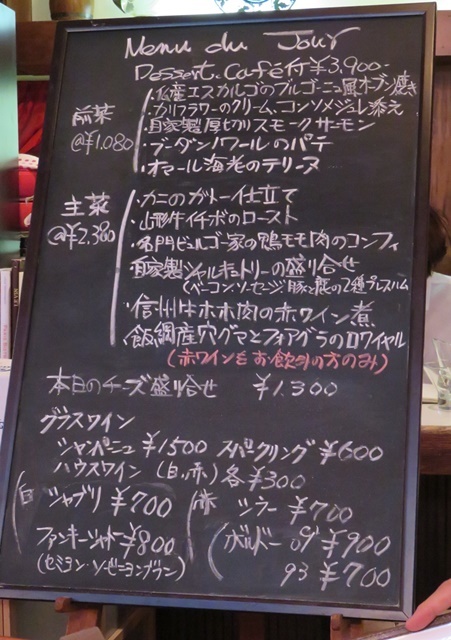 Menu du Jour
Dessert. Café付 ¥3,900-
前菜
@¥1.080
・仏産エスカルゴのブルゴーニュ風オーブン焼き
・カリフラワーのクリーム、コンソメジュレ添え
・自家製厚切りスモークサーモン
・ブーダンノワールのパテ
・オマール海老のテリーヌ
主菜
@¥2.380
・カニのガトー仕立て
・山形牛イチボのロースト
・名門ビュルゴー家の鴨モモ肉のコンフィ
自家製シャルキュトリーの盛り合せ
(ベーコン、ソーセージ、豚と鹿の2種プレスハム
・信州牛ホホ肉の赤ワイン煮
・飯綱産穴グマとフォアグラのロワイヤル
(赤ワインをお飲みの方のみ)
本日のチーズ盛り合せ ¥1.300
グラスワイン
シャンパーニュ ¥1500 スパークリング ¥600
ハウスワイン (白,赤) 各 ¥300
白 シャブリ ¥700
赤 シラー ¥700
ファンキーシャトー ¥800
ボルドー 09' ¥900
(セミヨン・ソービニヨンブラン)
93 ¥700